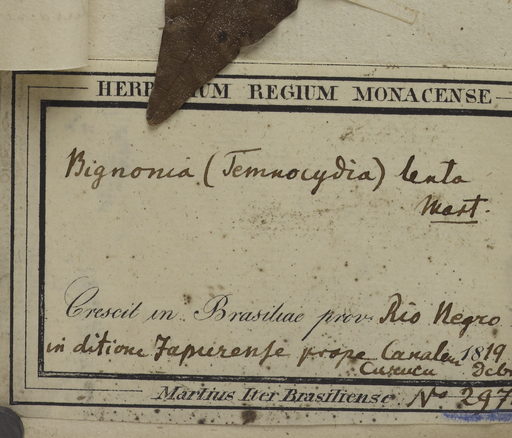 HERB RIUM REGIUM MONACENSE
Bignonia (Temnocydia) lenta
Mart.
Crescit in Brasiliae prov. Rio Negro
in ditione Japurense prope Canalem 1819
Dcbr
Martius Iter Brasiliense No 297